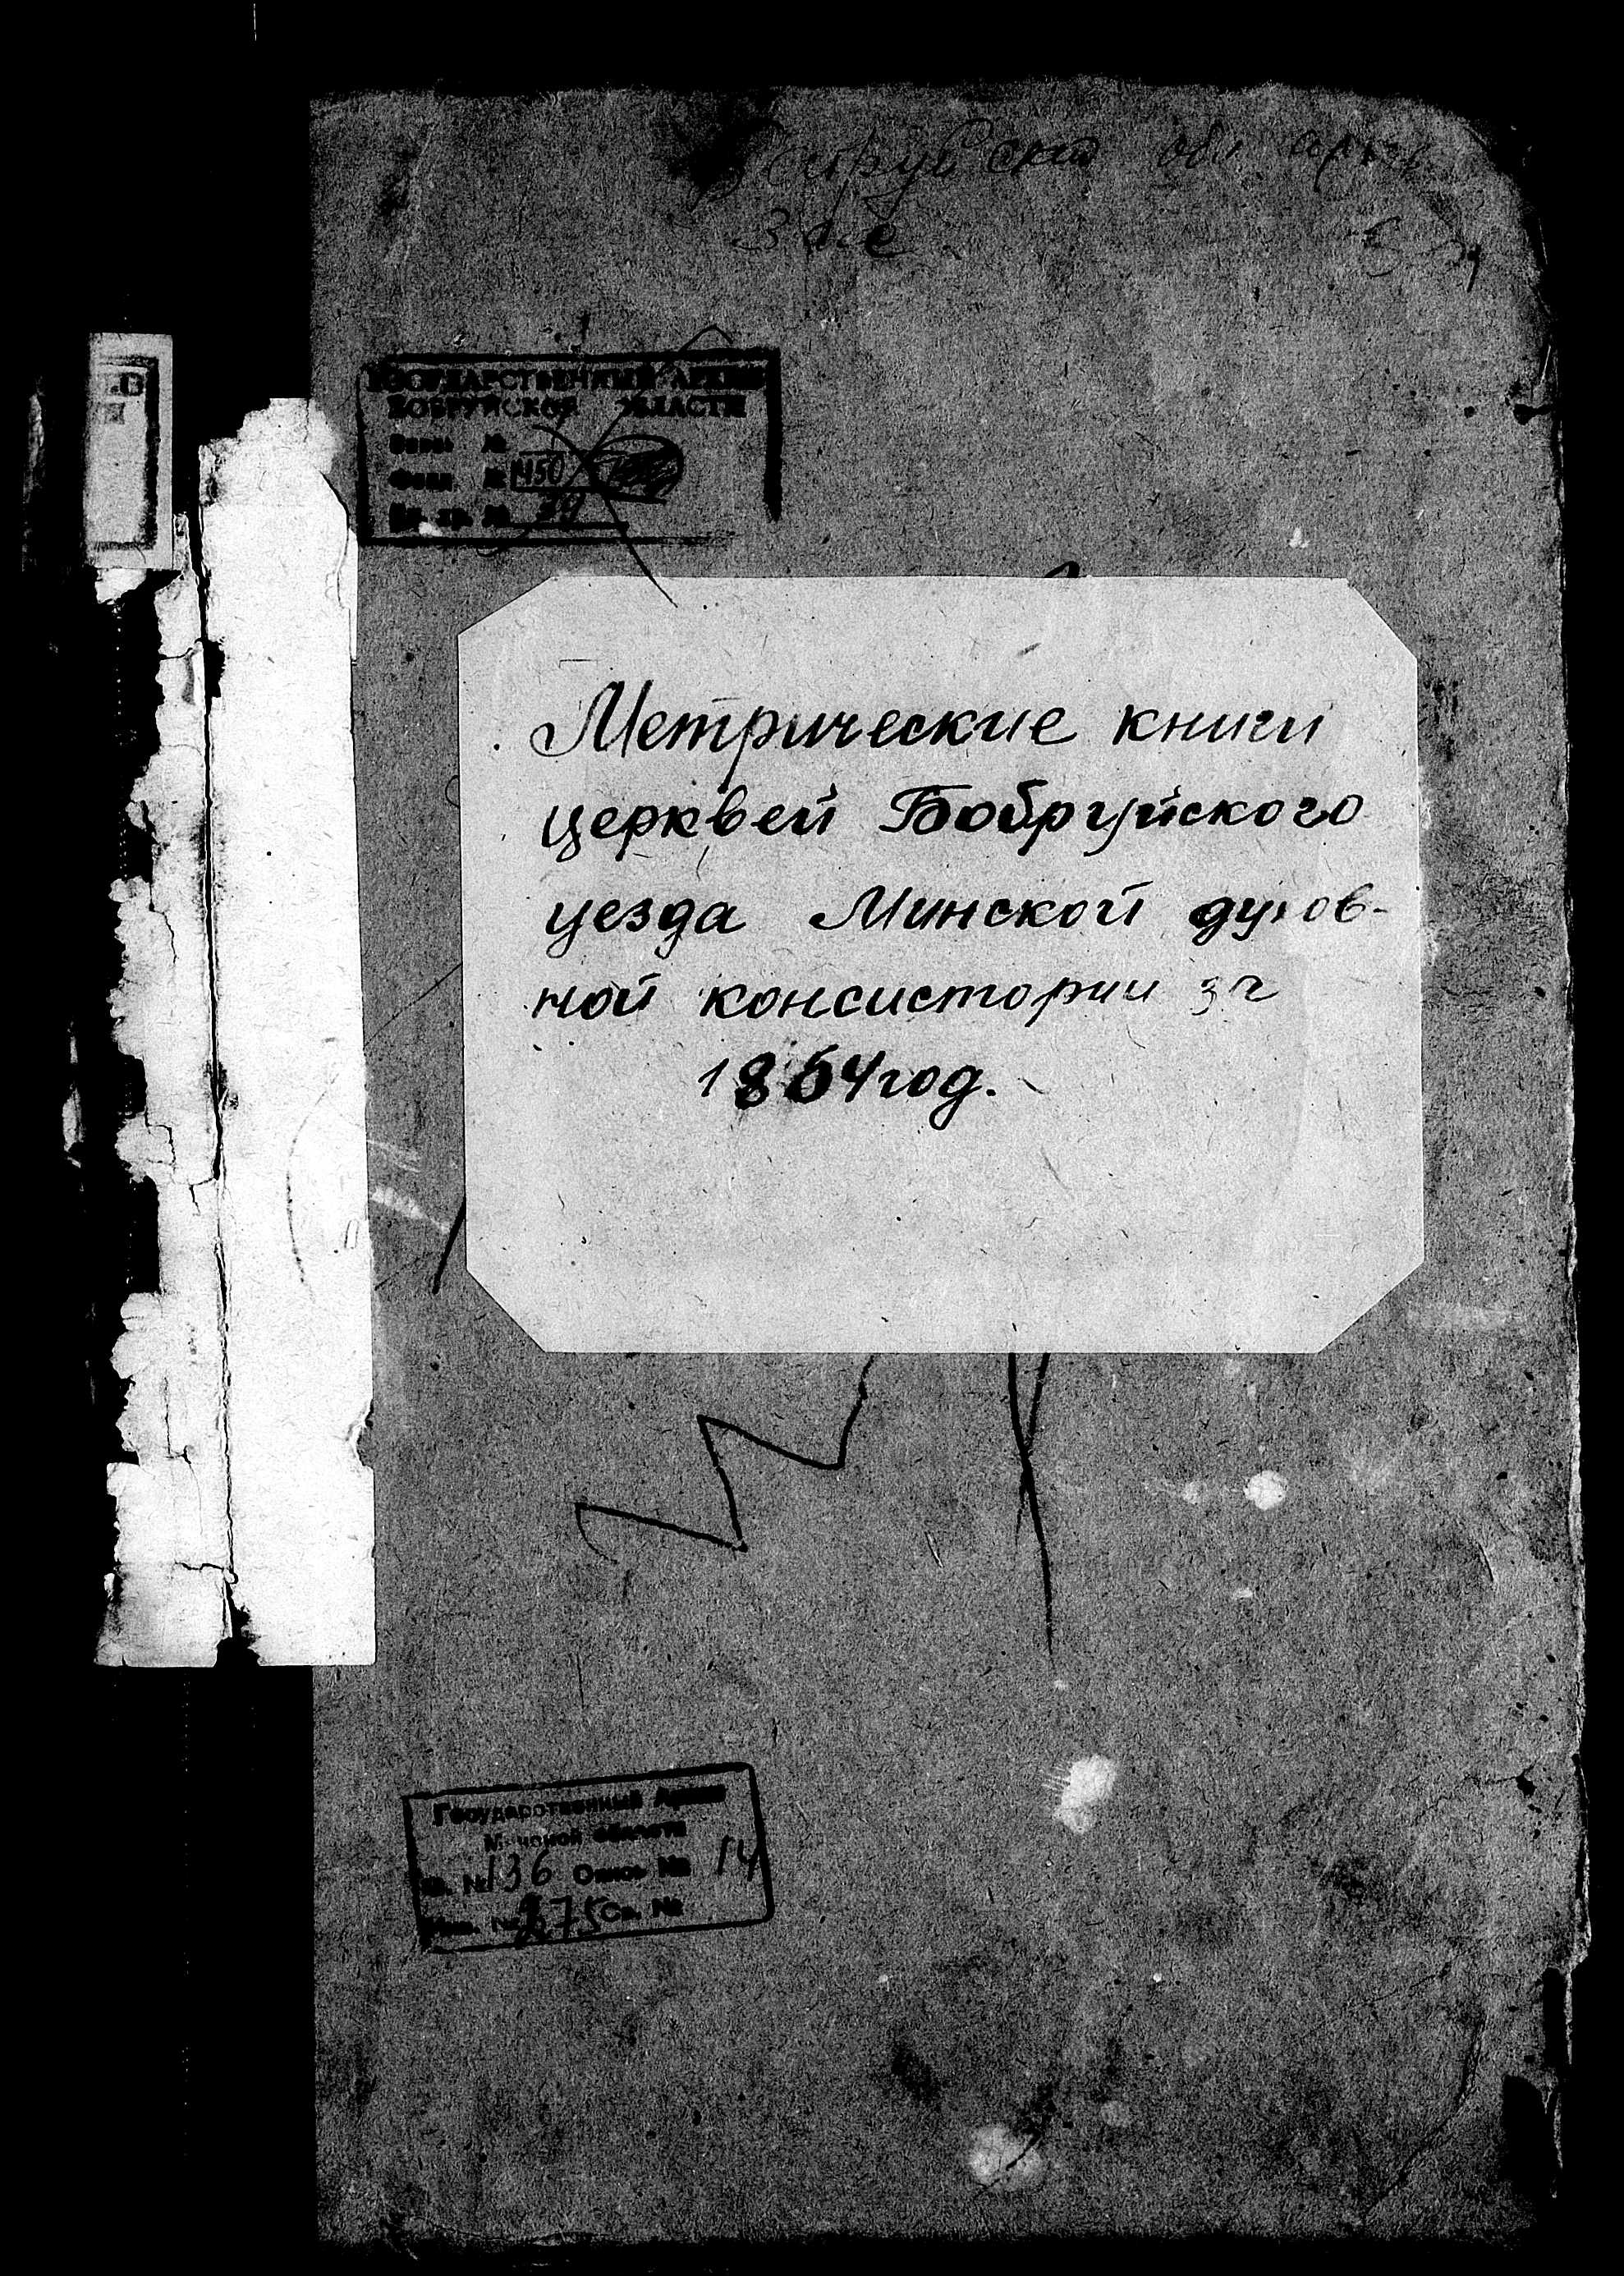 обл
ГОСУДАРСТВЕННЫЙ АРХИВ
БОБРУЙСКОЙ ОБЛАСТИ
№
Фонд. № 450
№ 29
Метрические книги
церквей Бобруйского
уезда Минской духов-
ной консистории за
1864 год.
Государственный Архив
Минской области
Ф. № 136 Опись № 14
№ 275 Св. №